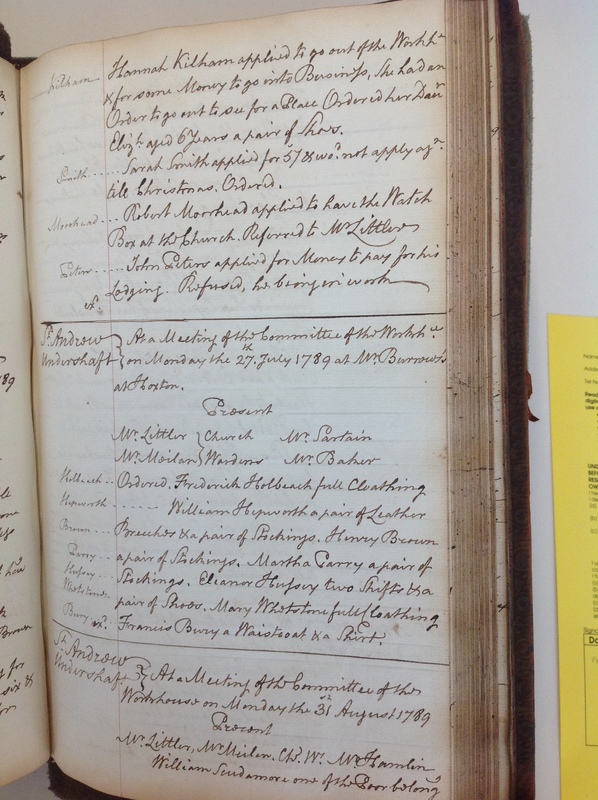 Kilham Hannah Kilham applied to go out of the Workhe.
& for some Money to go into Business, She had an
Order to go out to see for a Place Ordered her Daur
Elizth aged 6 Years a pair of Shoes.
Smith .... Sarah Smith applied for 5/ & wod. not apply agn.
till Christmas. Ordered.
Moorhead .... Robert Moorhead applied to have the Watch
Box at the Church. Referred to Mr Littler
Peters .... John Peters applied for Money to pay for his
exd. Lodging. Refused, he being in work
St. Andrew } At a Meeting of the Committee of the Workhe.
Undershaft } on Monday the 27th. July 1789 at Mr. Burrow's
at Hoxton.
Present
Mr. Littler } Church Mr. Sartain
Mr. Meilan } Wardens Mr. Baker
Holbeach Ordered. Frederick Holbeach full Cloathing
Hepworth .... William Hepworth a pair of Leather
Brown Breeches & a pair of Stockings. Henry Brown
Parry a pair of Stockings. Martha Parry a pair of
Hussey Stockings. Eleanor Hussey two Shifts & a
Whetstone pair of Shoes. Mary Whetstone full Cloathing
Bury exd. Francis Bury a Waistcoat & a Shirt.
St. Andrew } At a Meeting of the Committee of the
Undershaft } Workhouse on Monday the 31st August 1789
Present
Mr. Littler, Mr Meilan. Ch. Ws. Mr Hamlin
William Scudamore one of the Poor belong